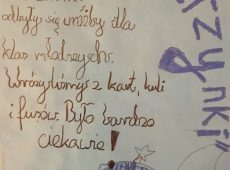 odbyły się wróżby dla
klas młodszych.
Wróżyliśmy z kart, kuli
i fusów. Było bardzo
ciekawie!
zynki"